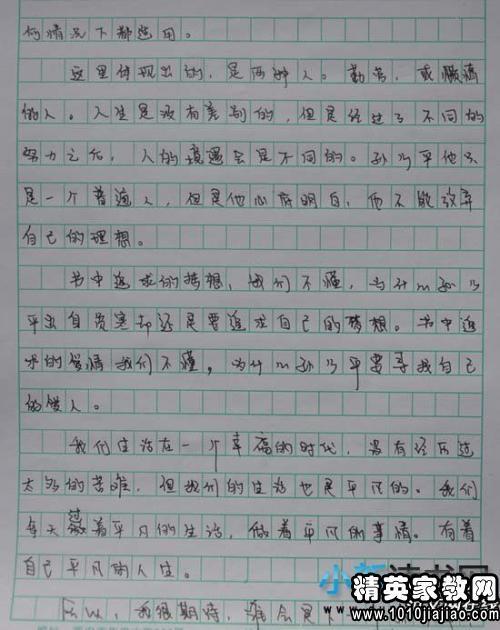 何情况下都适用。
这里体现出的，是两种人。勤劳，或懒惰
的人。人生是没有差别的，但是经过了不同的
努力之后，人的境遇会是不同的。孙少平他只
是一个普通人，但是他心存明白，他不能放弃
自己的理想。
书中追求的梦想，我们不懂，为什么孙少
平出自贫寒却还是要追求自己的梦想。书中追
求的爱情我们不懂，为什么孙少平要寻找自己
的爱人。
我们生活在一个幸福的时代，没有经历过
太多的苦难，但我们的生活也是平凡的。我们
每天过着平凡的生活，做着平凡的事情。有着
自己平凡的人生。
所以，我很期待，谁会是下一
精英家教网
www.1010jiajiao.com